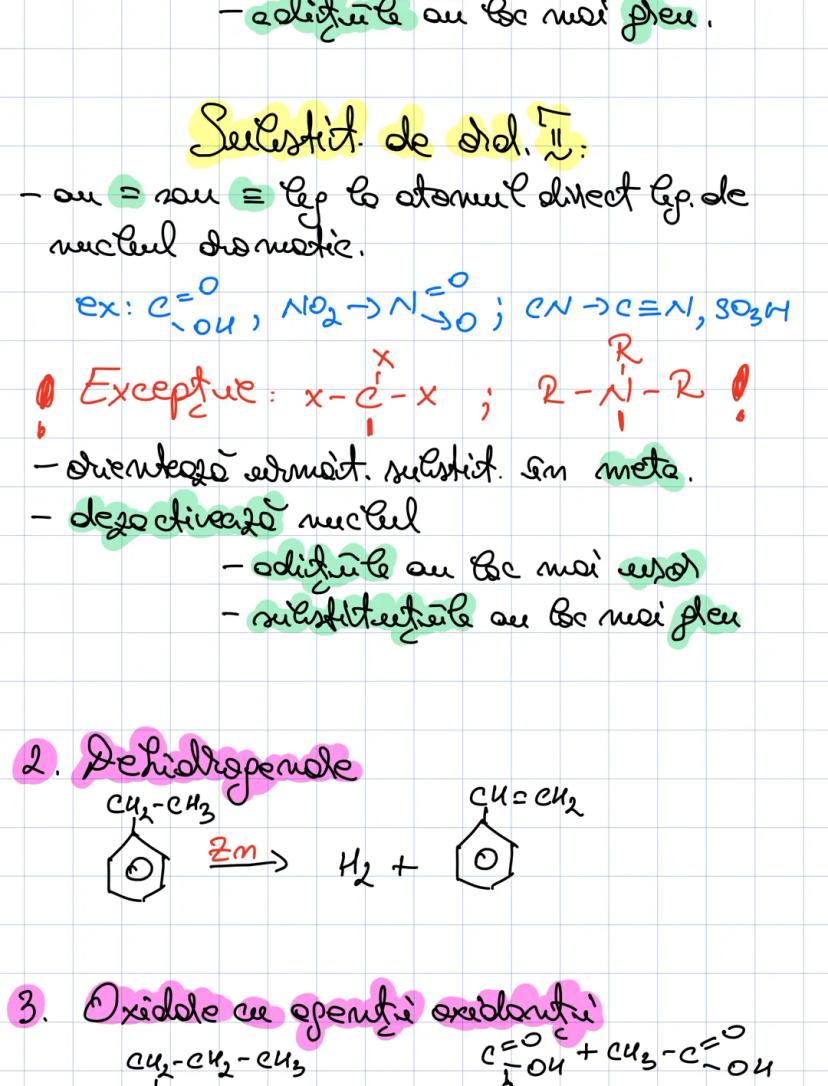 - adițiile au loc mai greu.
Substit. de ord. II.
- au = sau ≡ leg la atomul direct leg. de
nucleul aromatic.
ex: C=O -OH, NO2 → N=O →O ; CN → C≡N, SO3H
! Excepție: X-C-X X ; R-N-R R !
- orientează următ. substit. în meta.
- dezactivează nucleul
- adițiile au loc mai ușor
- substituțiile au loc mai greu
2. Dehidrogenare
CH2-CH3 CH=CH2
Zn → H2 +
3. Oxidare cu agenți oxidanți
CH2-CH2-CH3 C=O -OH + CH3-C=O -OH